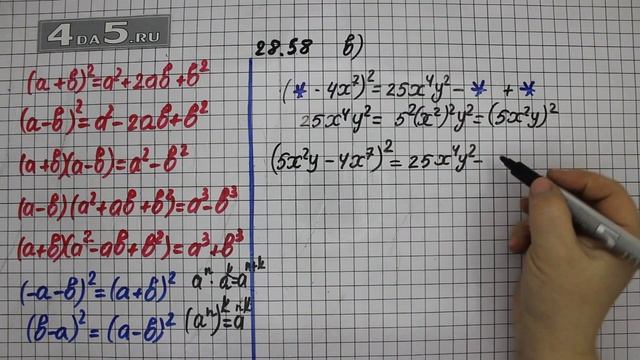 4DA5.RU
(a+b)²=a²+2ab+b²
(a-b)²=a²-2ab+b²
(a+b)(a-b)=a²-b²
(a-b)(a²+ab+b²)=a³-b³
(a+b)(a²-ab+b²)=a³+b³
(-a-b)²=(a+b)²
(b-a)²=(a-b)²
aⁿ·aᵏ=aⁿ⁺ᵏ
(aⁿ)ᵏ=aⁿ·ᵏ
28.58 в)
(* - 4x⁷)²=25x⁴y²-* +*
25x⁴y²= 5²(x²)²y²=(5x²y)²
(5x²y-4x⁷)²=25x⁴y²-